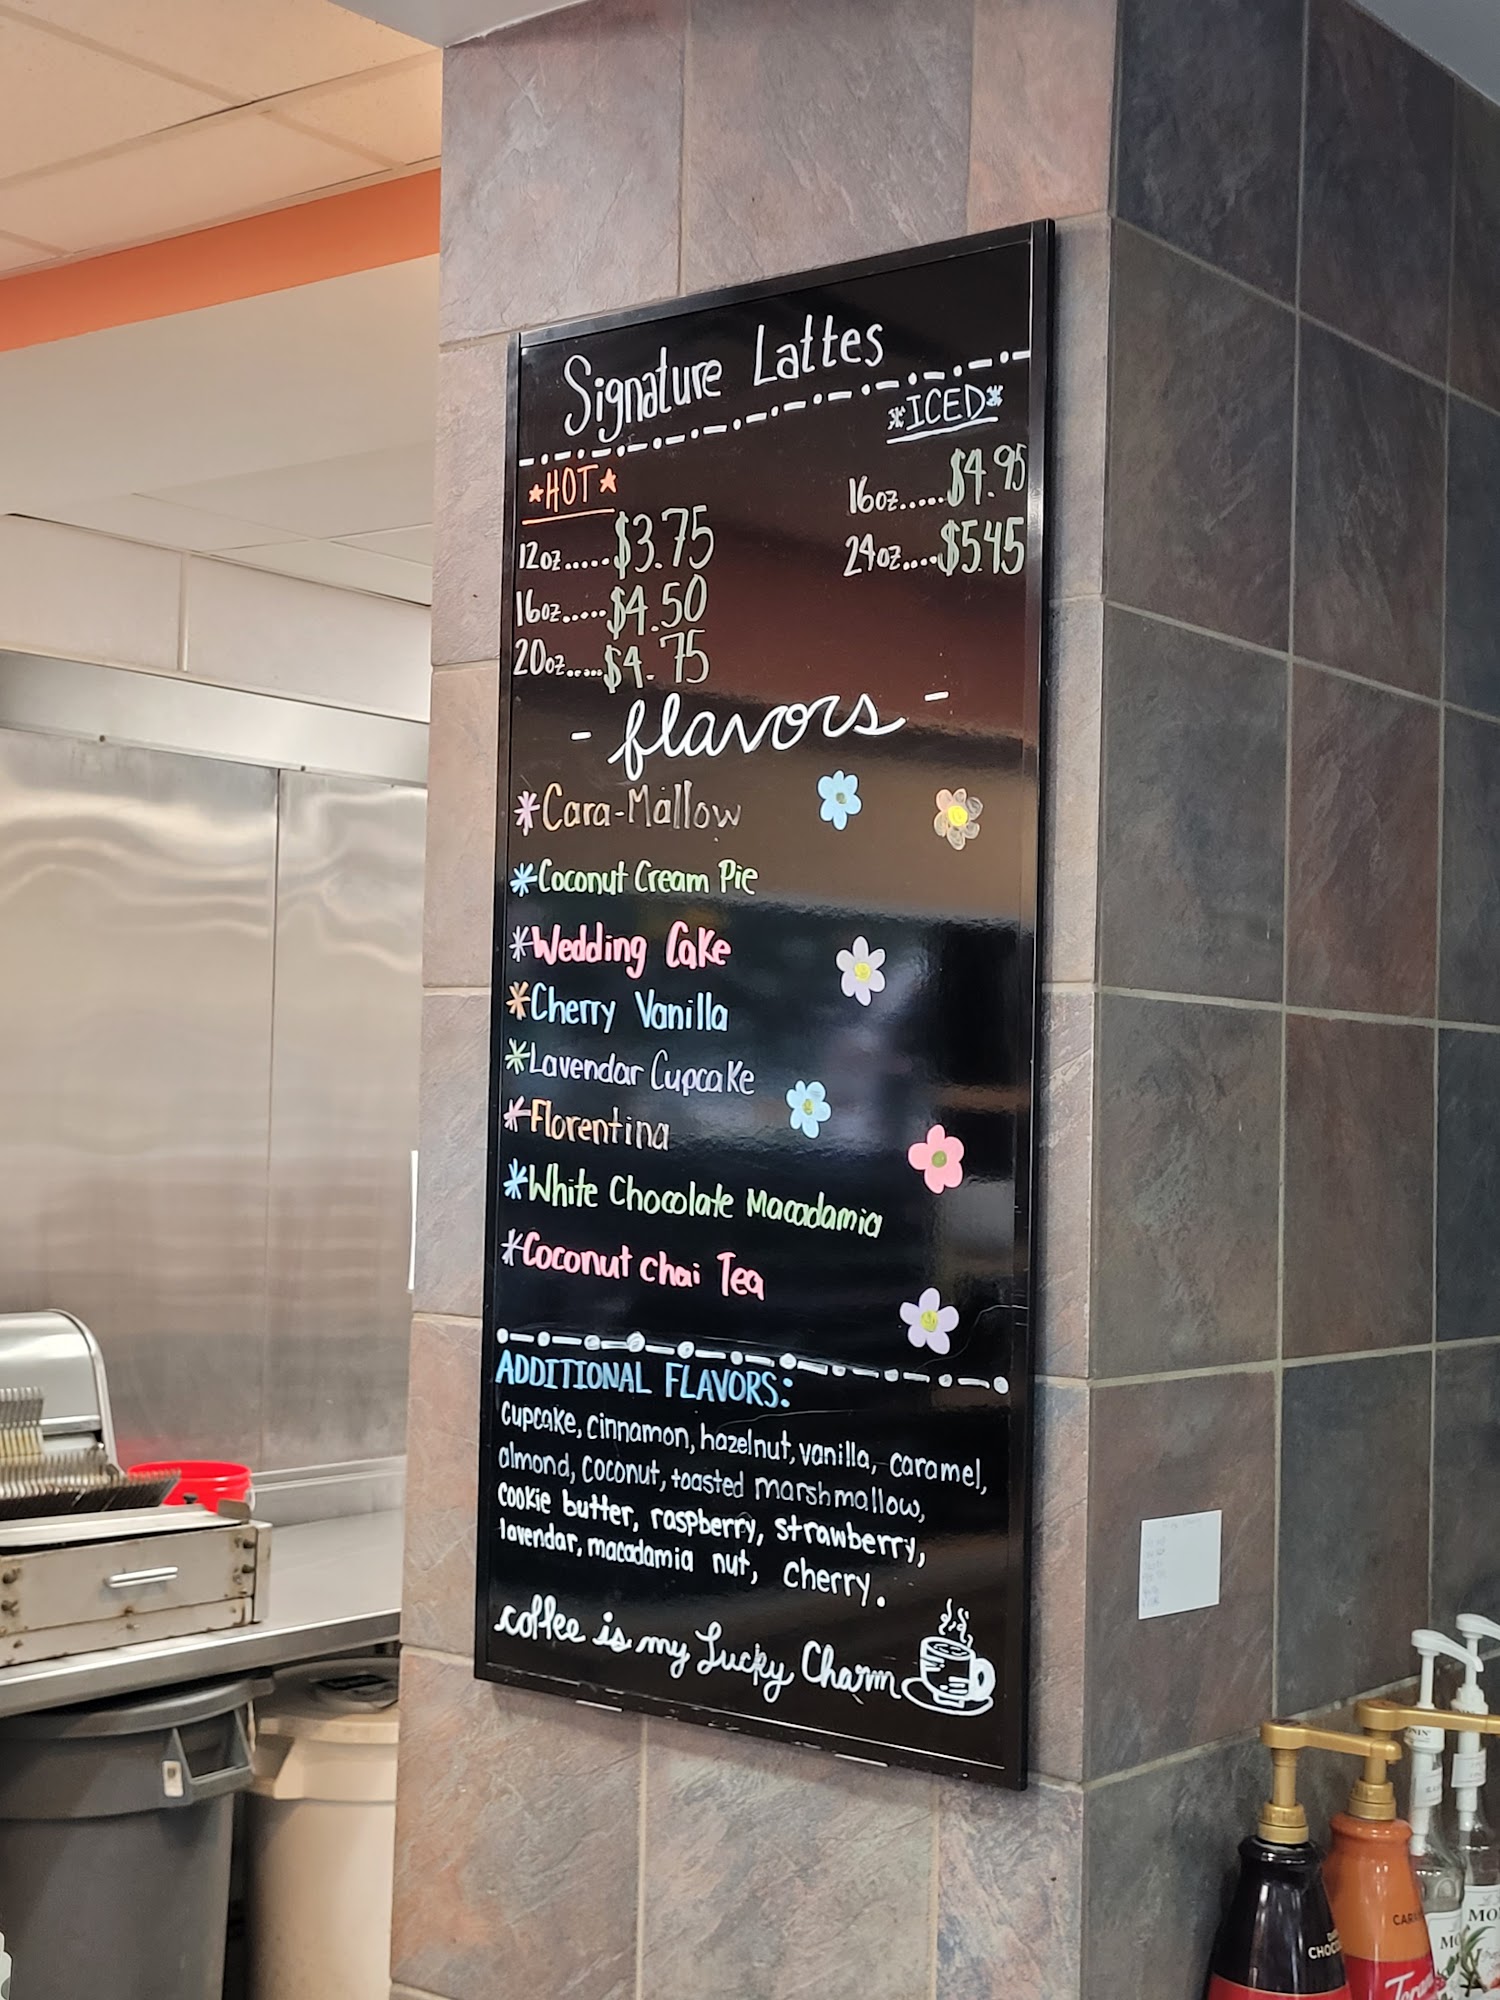 Signature Lattes
*HOT*
12oz.....$3.75
16oz.....$4.50
20oz.....$4.75
*ICED*
16oz.....$4.95
24oz....$5.45
- flavors -
*Cara-Mallow
*Coconut Cream Pie
*Wedding Cake
*Cherry Vanilla
*Lavendar Cupcake
*Florentina
*White Chocolate Macadamia
*Coconut chai Tea
ADDITIONAL FLAVORS:
cupcake, cinnamon, hazelnut, vanilla, caramel,
almond, coconut, toasted marshmallow,
cookie butter, raspberry, strawberry,
lavendar, macadamia nut, cherry.
coffee is my Lucky Charm